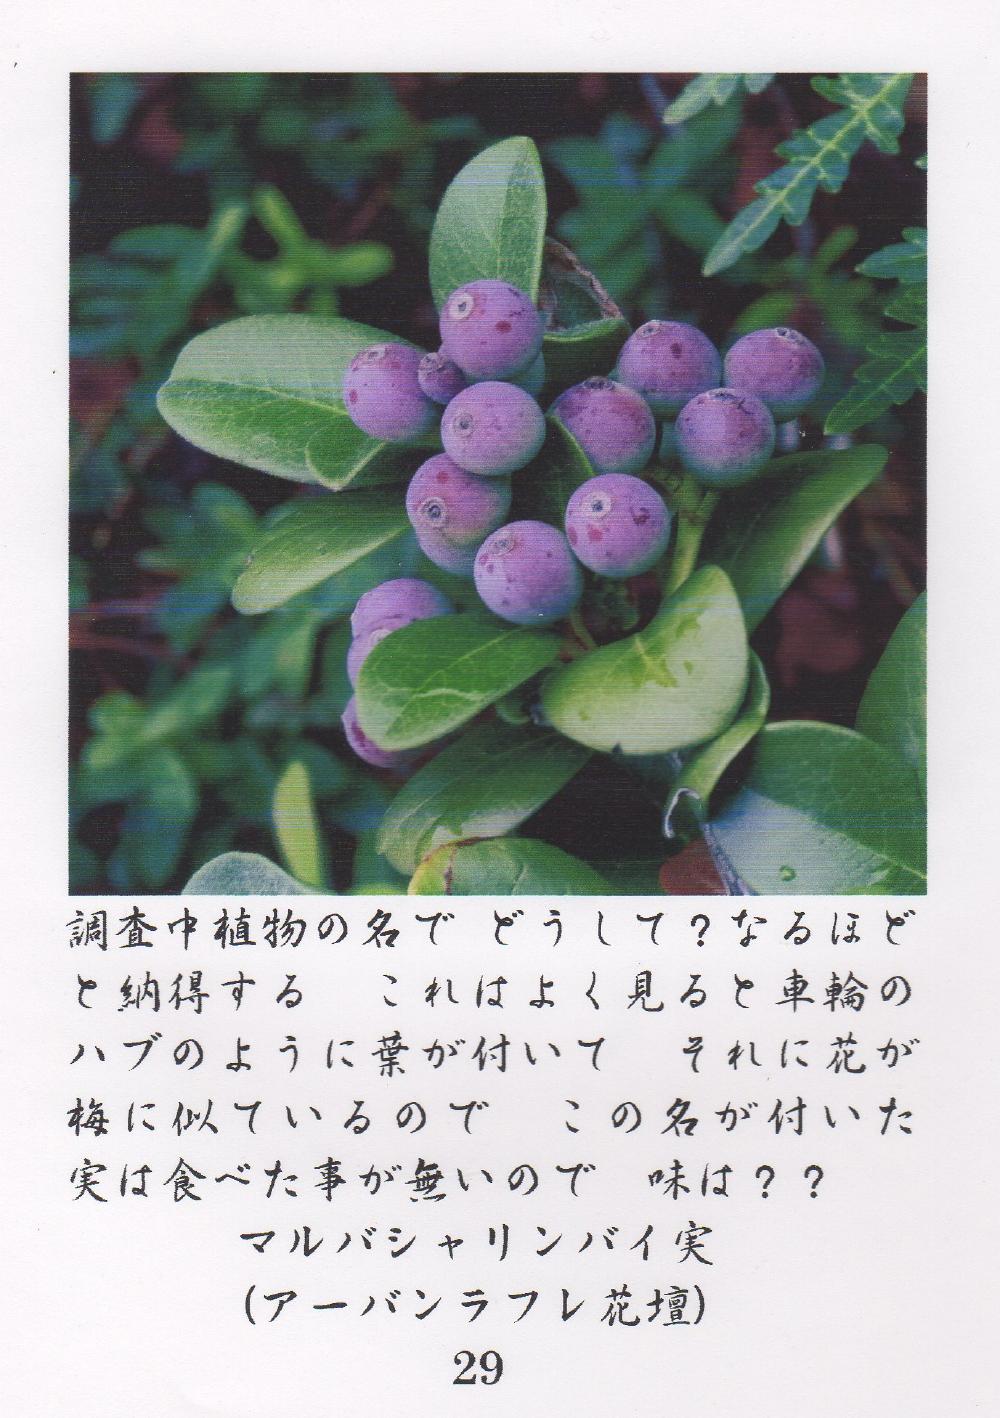 調査中植物の名で どうして？なるほど
と納得する　これはよく見ると車輪の
ハブのように葉が付いて　それに花が
梅に似ているので　この名が付いた
実は食べた事が無いので　味は？？
マルバシャリンバイ実
(アーバンラフレ花壇)
29